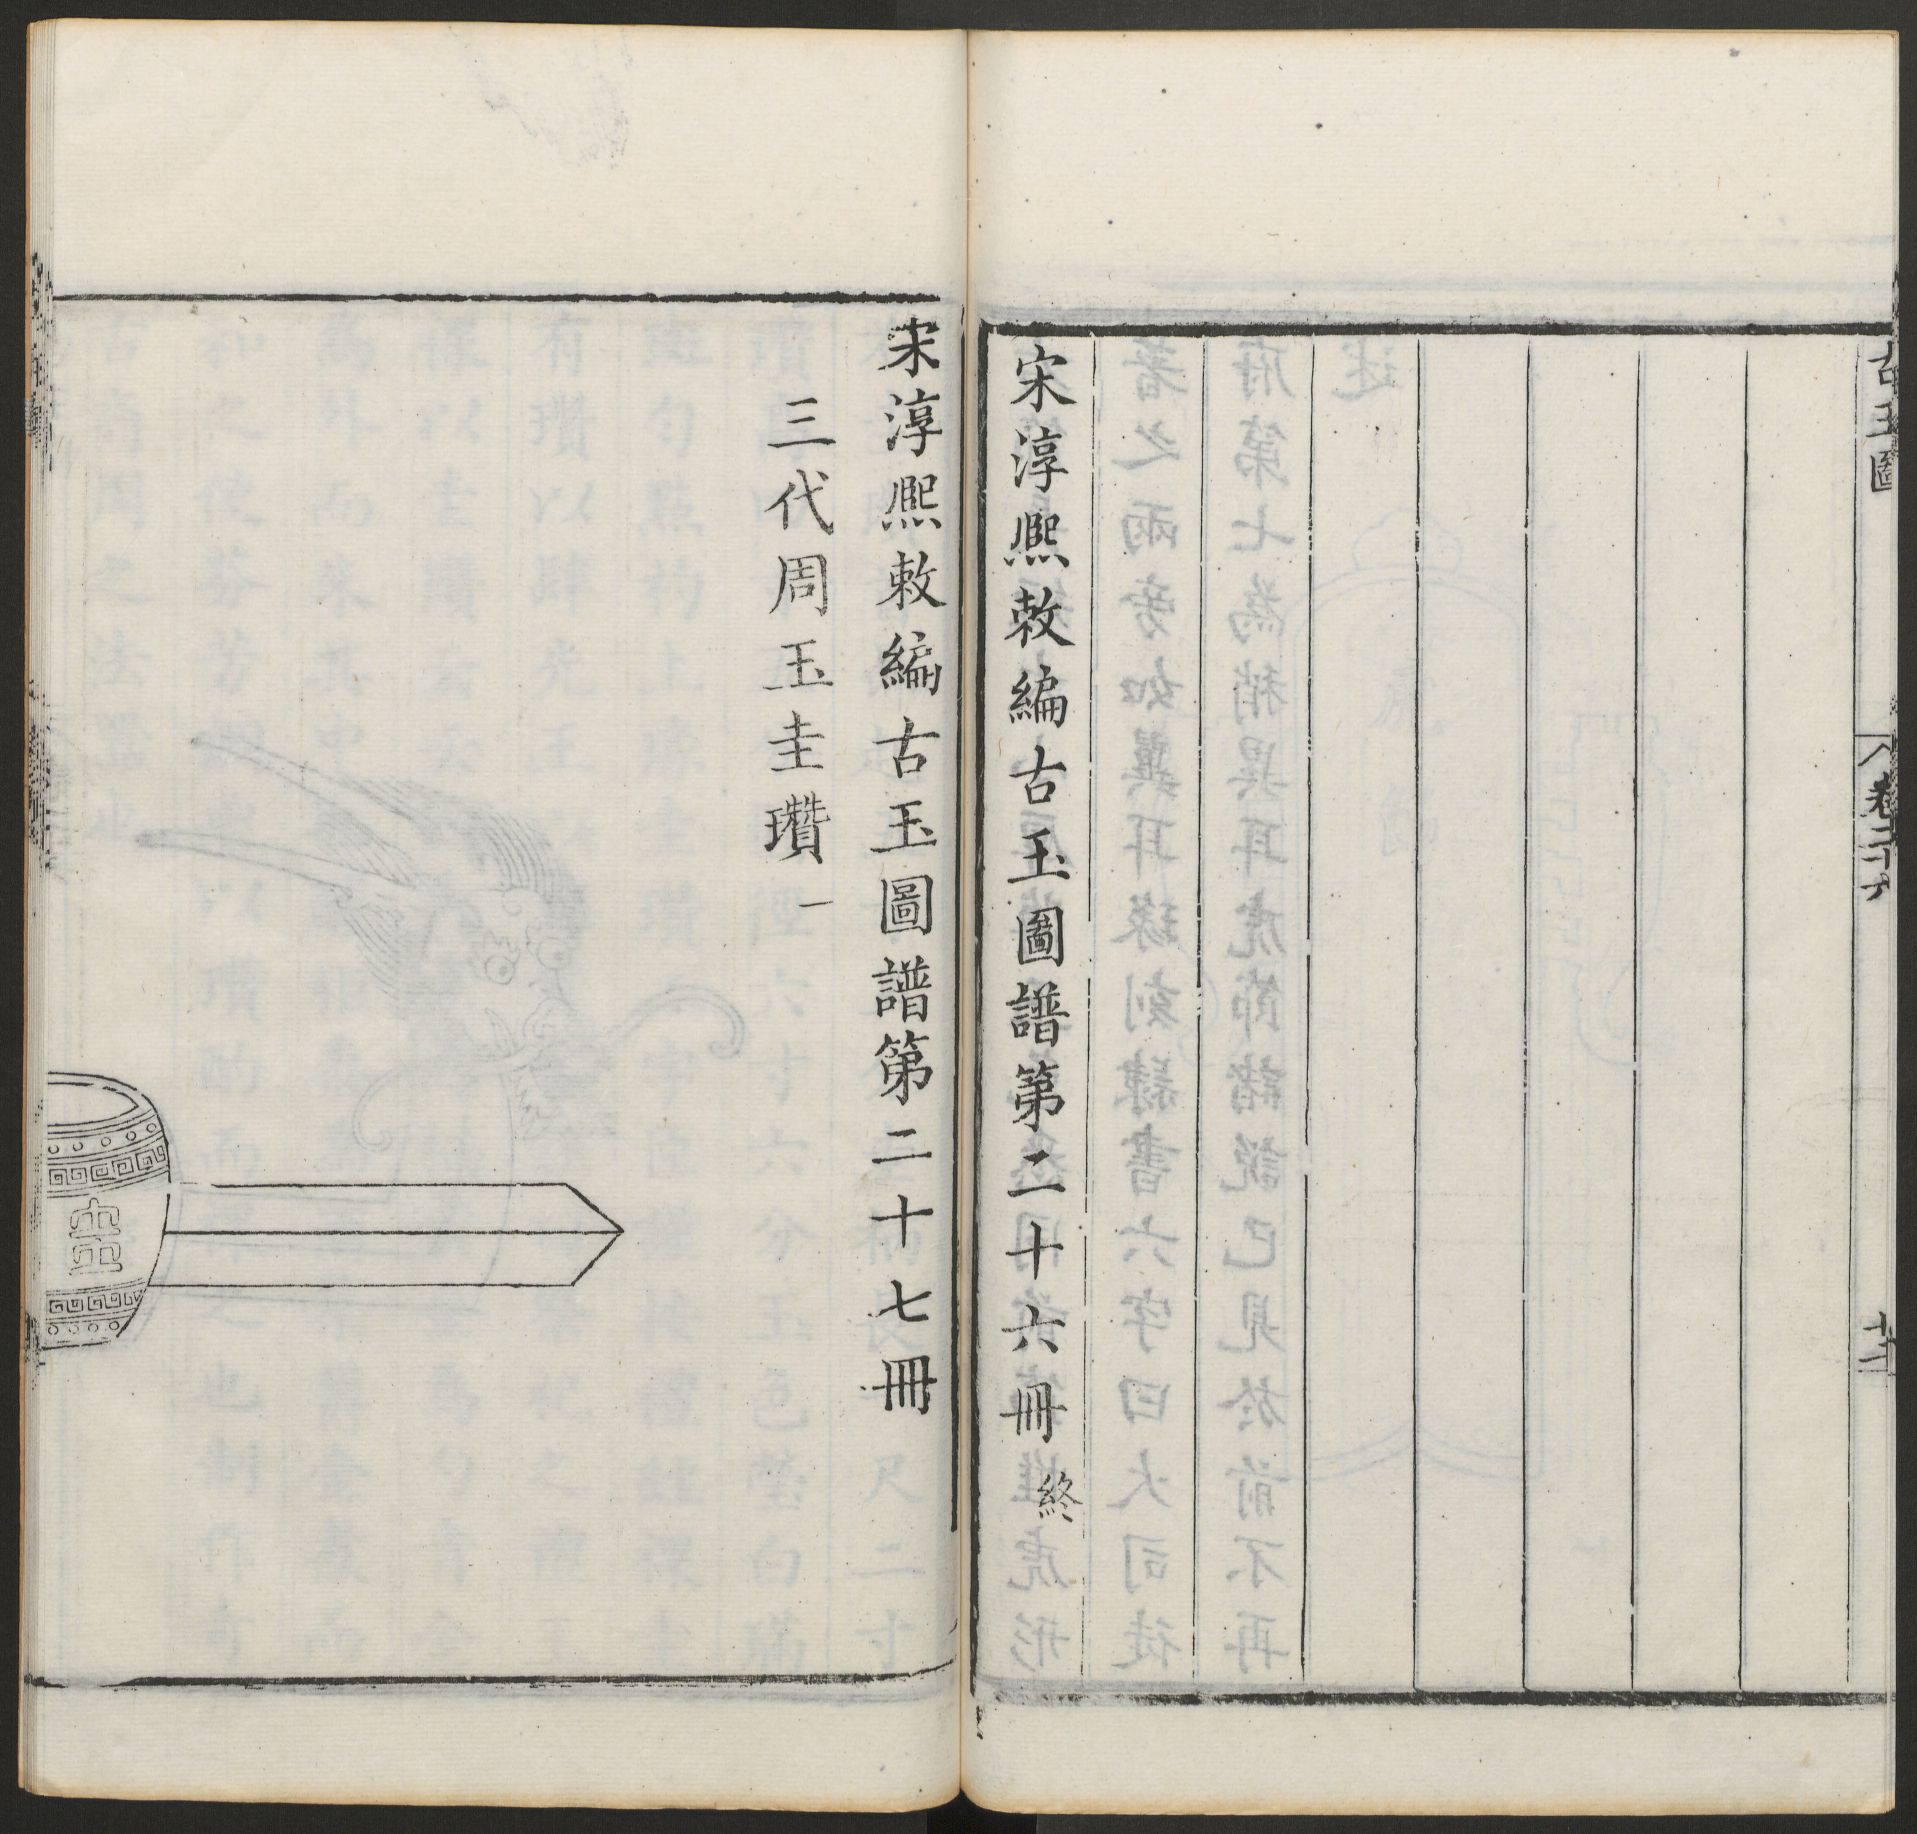 古玉圖
卷二十六
宋淳熙敕編古玉圖譜第二十六冊 終
宋淳熙敕編古玉圖譜第二十七冊
三代周玉圭瓚一